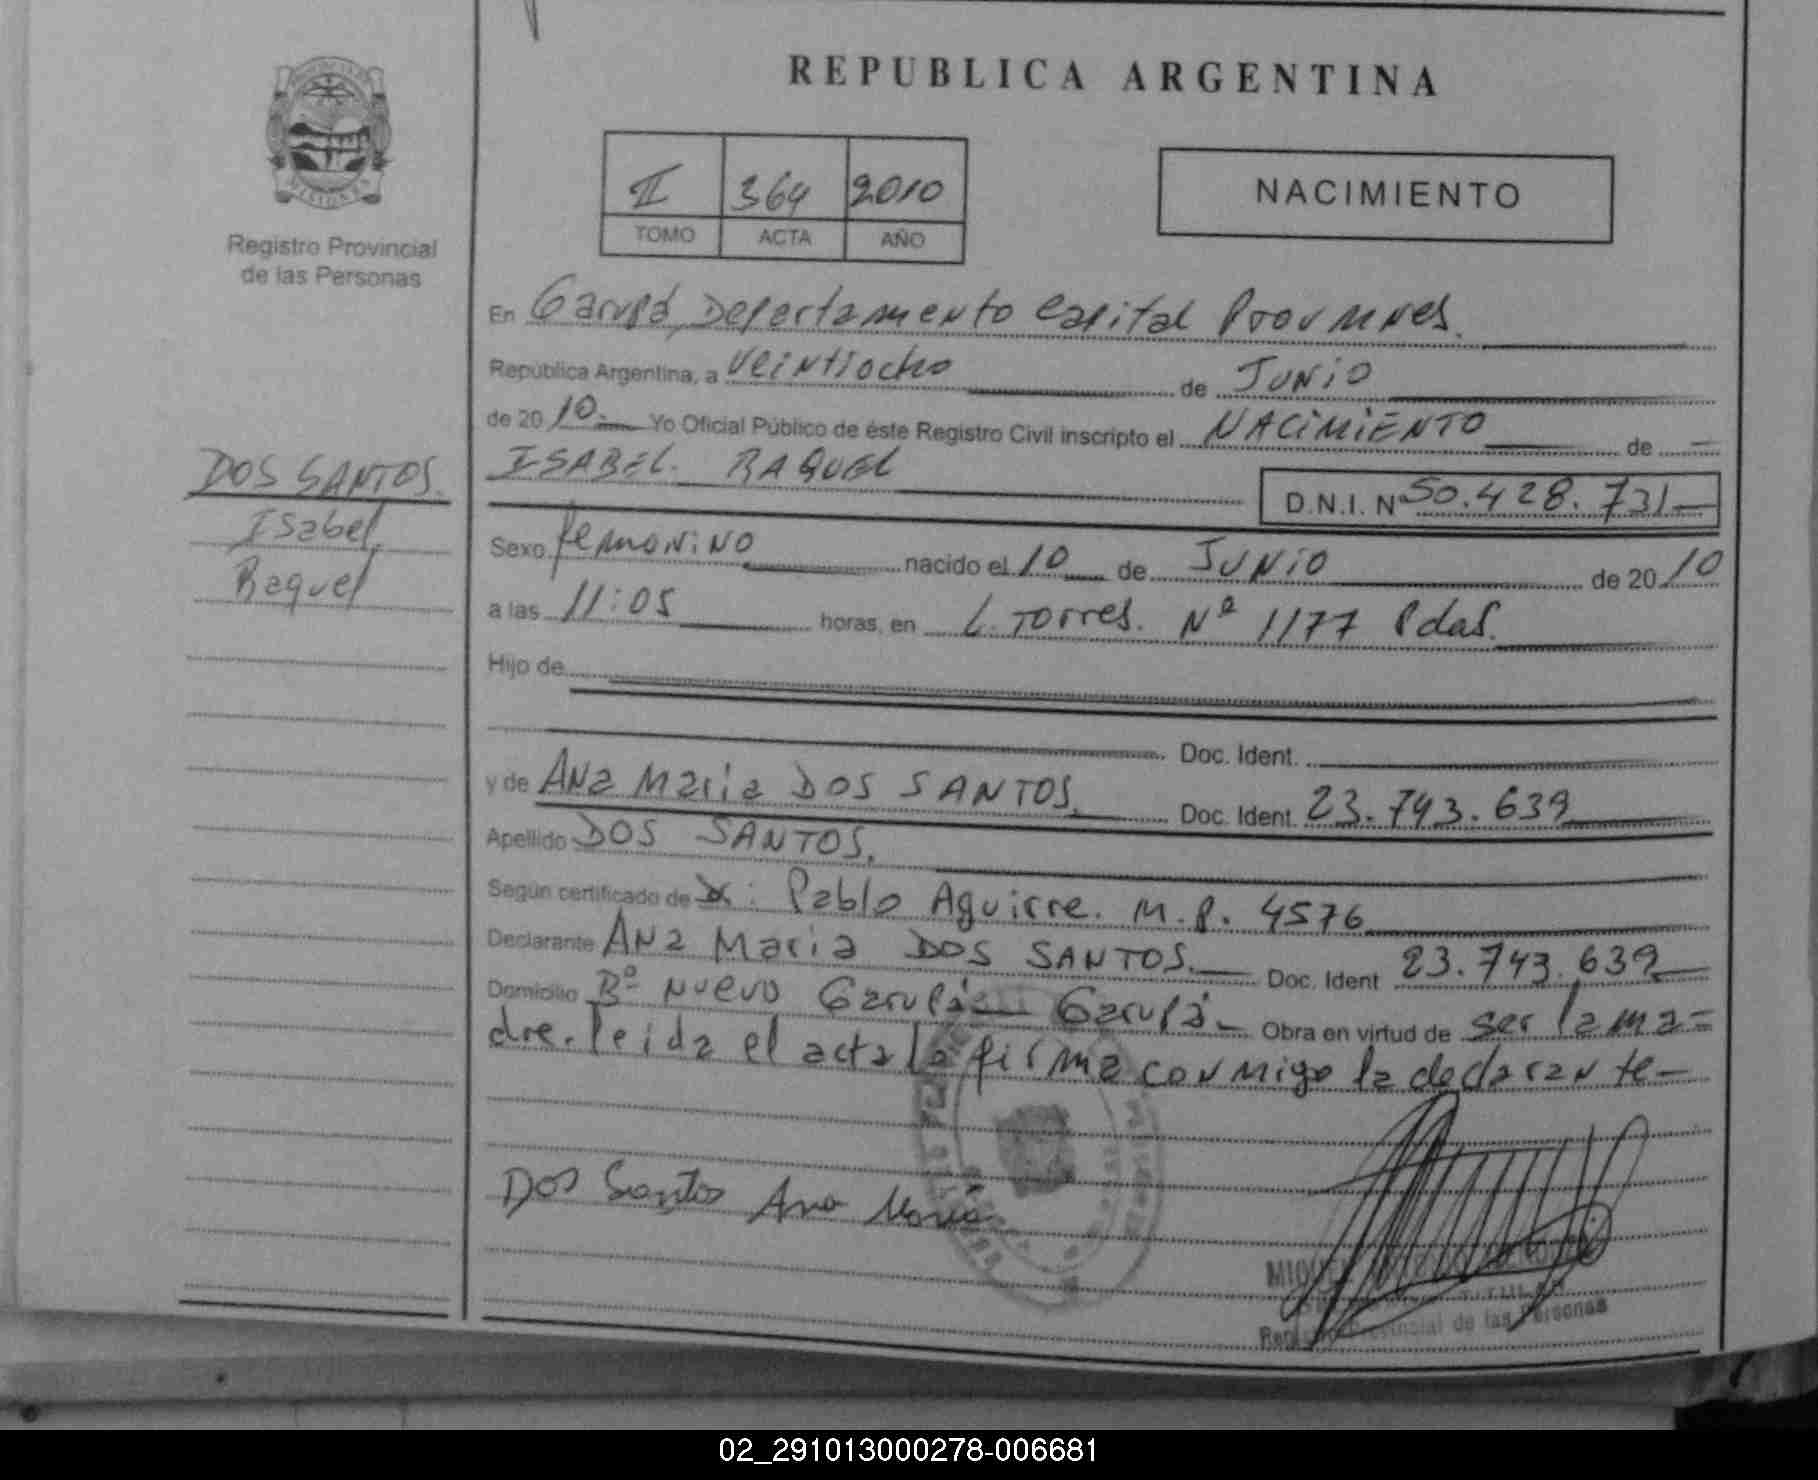 REPUBLICA ARGENTINA
II 364 2010
TOMO ACTA AÑO
NACIMIENTO
MISIONES
Registro Provincial
de las Personas
DOS SANTOS.
Isabel
Raquel
En Garupá, Departamento Capital Prov Mnes.
República Argentina, a veintiocho de Junio
de 2010. Yo Oficial Público de éste Registro Civil inscripto el NACIMIENTO de
ISABEL. RAQUEL
D.N.I. Nº 50.428.731
Sexo femenino nacido el 10 de JUNIO de 2010
a las 11:05 horas, en L. Torres. Nº 1177 Pdas.
Hijo de
Doc. Ident.
y de Ana Maria DOS SANTOS. Doc. Ident. 23.743.639
Apellido DOS SANTOS.
Según certificado de Dr: Pablo Aguirre. M.P. 4576
Declarante Ana Maria DOS SANTOS. Doc. Ident 23.743.639
Domicilio Bº Nuevo Garupá Garupá. Obra en virtud de ser la ma=
dre. leida el acta la firma conmigo la declarante
Dos Santos Ana María
TITULAR
Registro Provincial de las Personas
02_291013000278-006681